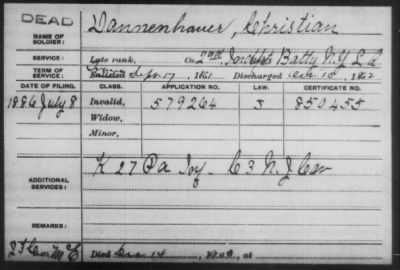 DEAD
Dannenhauer, Christian
NAME OF SOLDIER:
SERVICE: Late rank, Co. Batty N.Y. L.A.
TERM OF SERVICE: Enlisted Sept 17, 1861 Discharged Oct 18, 1862
DATE OF FILING. CLASS. APPLICATION NO. LAW. CERTIFICATE NO.
1886 July 8 Invalid, 579264 850455
Widow,
Minor,
ADDITIONAL SERVICES: K 27 Pa Inf. C 3 N.J. Cav
REMARKS:
Died 14, at